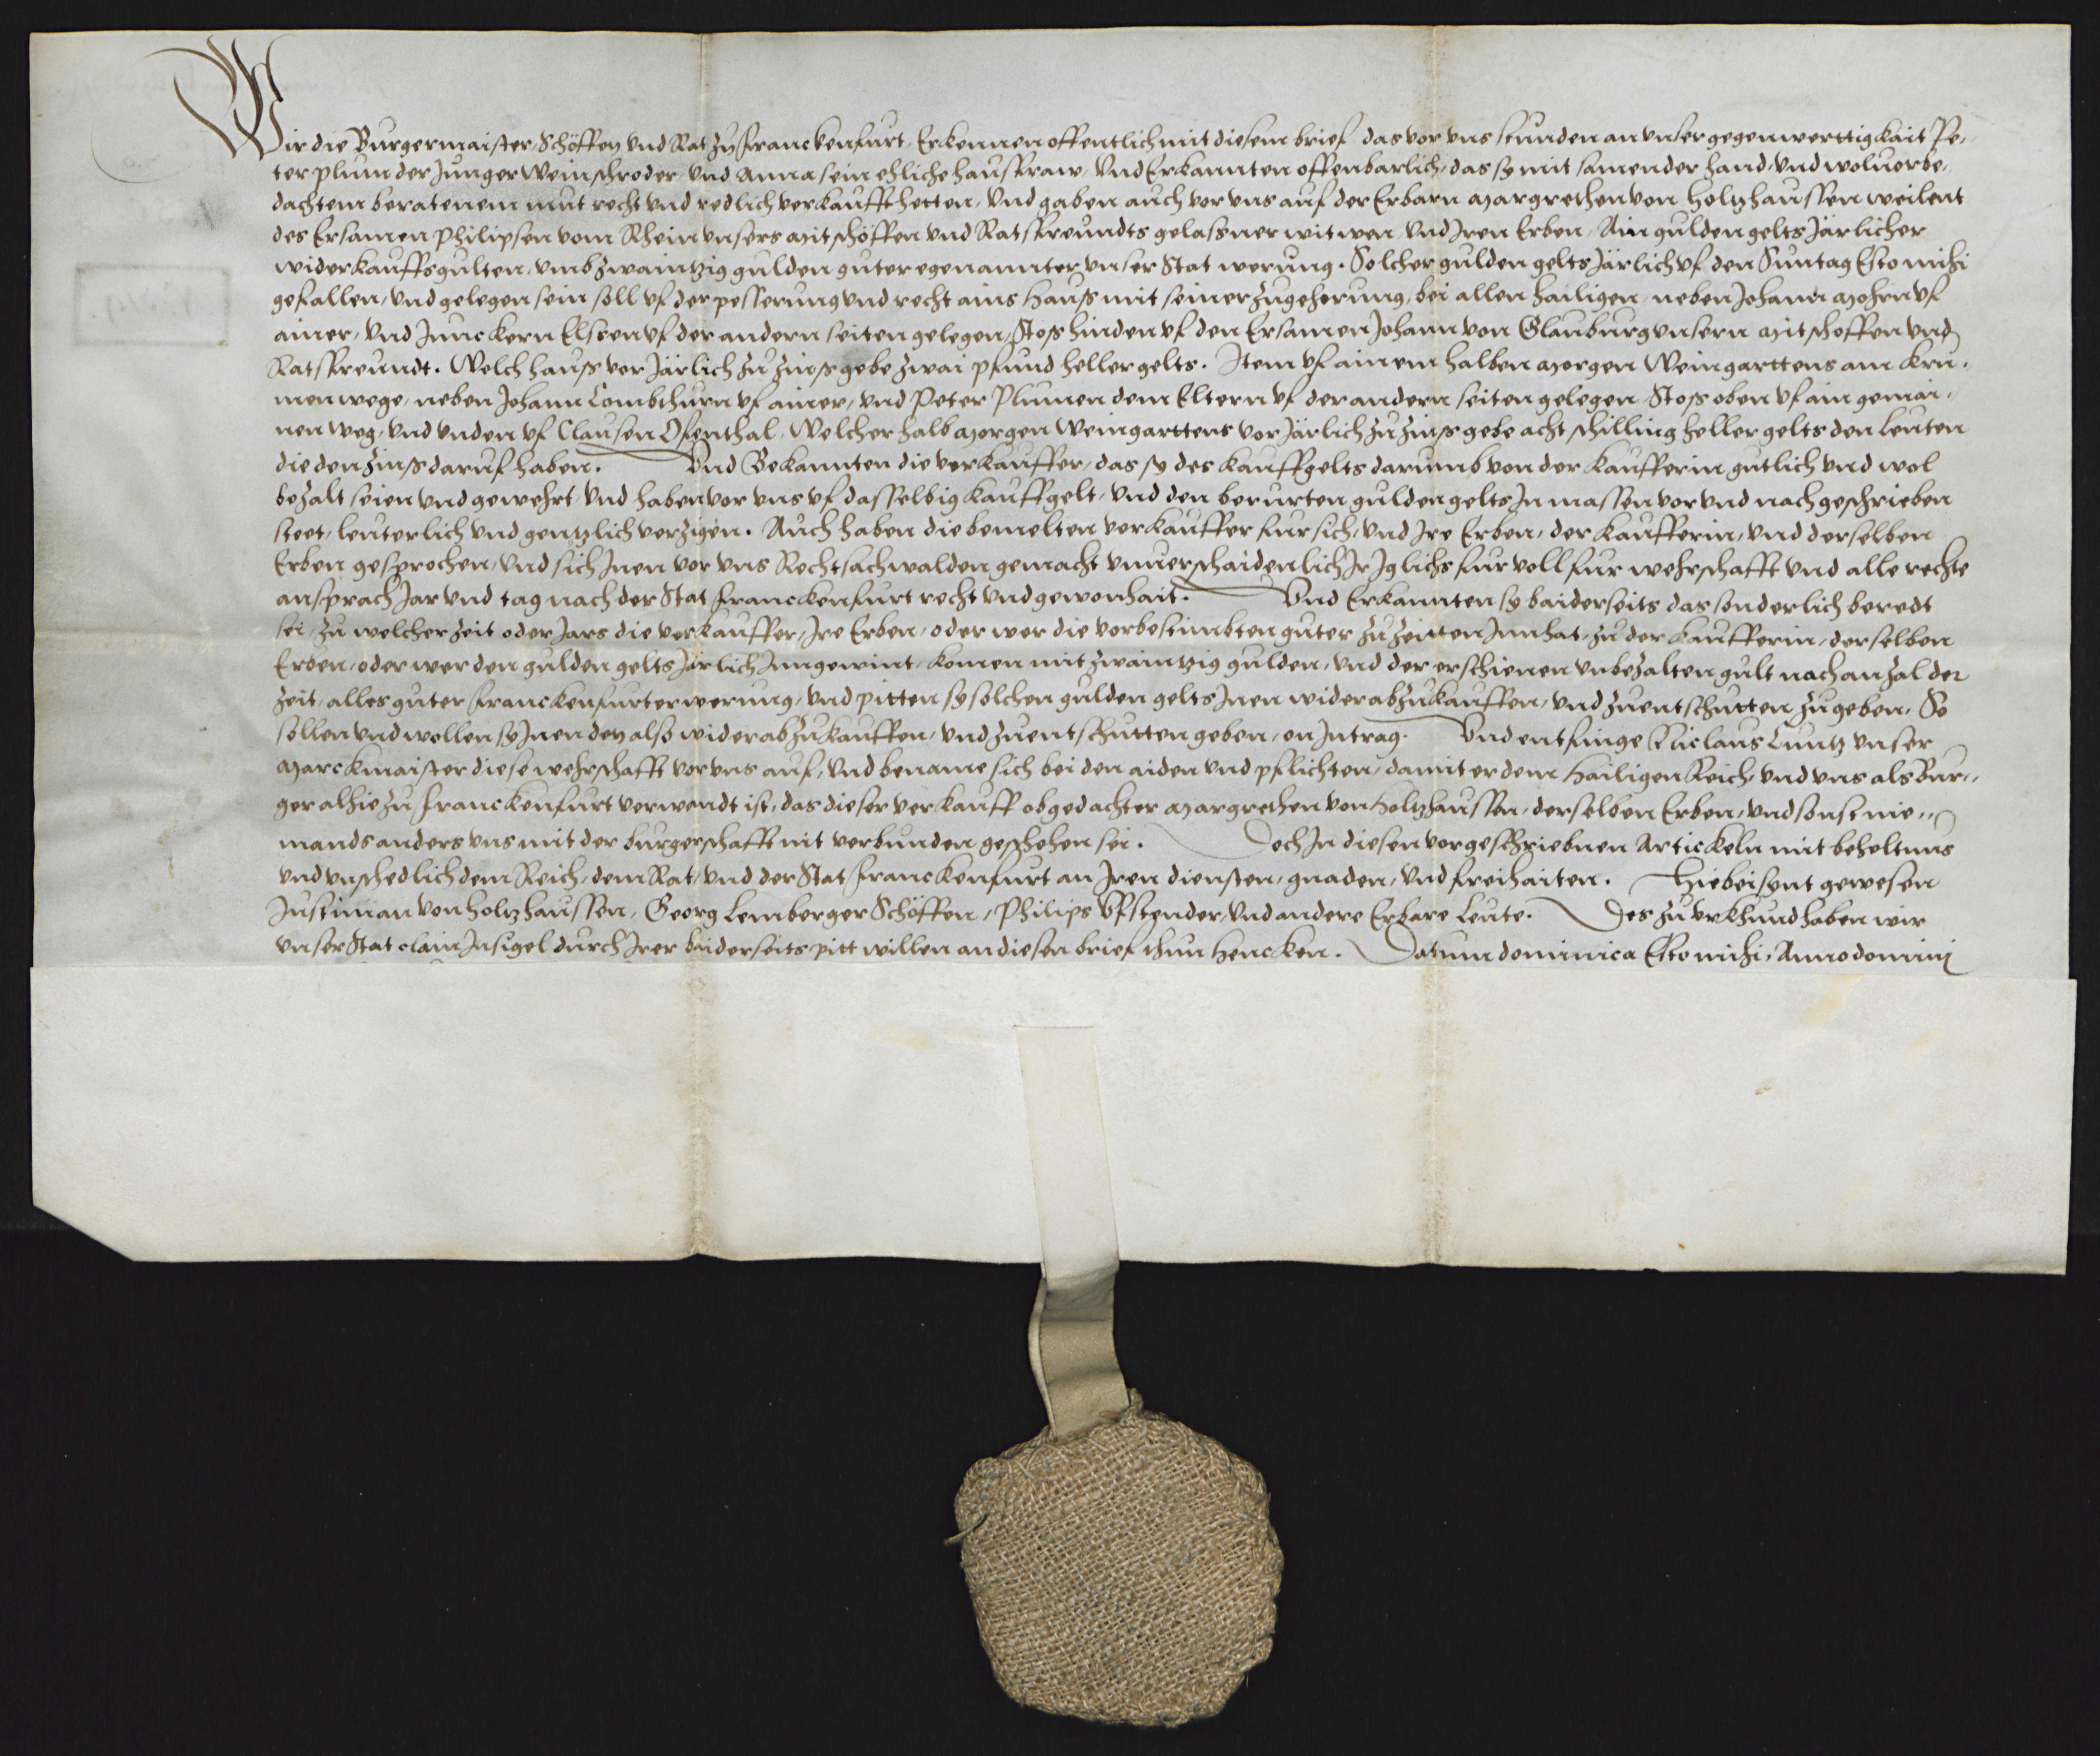 Wir die Burgermaister Schöffen vnd Rat zu Franckenfurt, Erkennen offentlich mit diesem brief das vor vns stunden an vnser gegenwerttigkait Pe-
ter plum der Junger Weinschroder, vnd Anna sein ehliche hausfraw, Vnd Erkannten offenbarlich, das sy mit samender hand, vnd woluorbe-
dachtem beratenem mut recht vnd redlich verkaufft hetten, Vnd gaben auch vor vns auf der Erbarn Margrethen von Holtzhaussen weilent
des Ersamen Philipsen vom Rhein vnsers Mitschöffen vnd Ratsfreundts gelassner witwen vnd Iren Erben, Ain gulden gelts Järlicher
widerkauffsgulten, vmb zwaintzig gulden guter egenannter vnser Stat werung. Solcher gulden gelts Järlich vf den Suntag Estomihi
gefallen, vnd gelegen sein soll vf der pesserung vnd recht ains Hauß mit seiner zugehorung, bei allen hailigen, neben Johann Mohrn vf
ainer, vnd Junckern Elssen vf der andern seiten gelegen, Stoß hinden vf den Ersamen Johann von Glauburg vnsern Mitschoffen vnd
Ratsfreundt. Welch hauß vor Järlich zu zinß gebe zwai pfund heller gelts. Item vf ainem halben Morgen Weingarttens am kru-
men wege, neben Johann Lombthurn vf ainer, vnd Peter Plumen dem Eltern vf der andern seiten gelegen, Stoß oben vf ain gemai-
nen weg, vnd vnden vf Clausen Ofenthal, Welcher halb Morgen Weingarttens vor Järlich zu zinß gebe acht schilling heller gelts den leuten
die den zinß daruf haben. Vnd Bekannten die verkauffer, das sy des kauffgelts darumb von der kaufferin gutlich vnd wol
bezalt seien vnd gewehrt, vnd haben vor vns vf dasselbig kauffgelt, vnd den berurten gulden gelts In massen vor vnd nachgeschrieben
steet, leuterlich vnd gentzlich verzigen. Auch haben die bemelten verkauffer fur sich, vnd Ire Erben, der kaufferin, vnd derselben
Erben gesprochen, vnd sich Inen vor vns Rechtsachwalden gemacht vnuerschaidenlich Ir Iglichs fur voll fur wehrschafft vnd alle rechte
ansprach Jar vnd tag nach der Stat Franckenfurt recht vnd gewonhait. Vnd Erkannten sy baiderseits das sonderlich beredt
sei, zu welcher zeit oder Jars die verkauffer, Ire Erben, oder wer die vorbestimbten guter zu zeitten Innhat, zu der kaufferin, derselben
Erben, oder wer den gulden gelts Järlich Inngewint, komen mit zwaintzig gulden, vnd der erschienen vnbezalten gult nach anzal der
zeit, alles guter Franckenfurter werung, vnd pitten sy solchen gulden gelts Inen wider abzukauffen, vnd zuentschutten zugeben, So
sollen vnd wollen sy Inen den also wider abzukauffen, vnd zuentschutten geben, on Intrag. Vnd entfinge Niclaus Cuntz vnser
Marckmaister diese wehrschafft vor vns auf, vnd bename sich bei den aiden vnd pflichten, damit er dem Hailigen Reich, vnd vns als Bur-
ger alhie zu Franckenfurt verwandt ist, das dieser verkauff obgedachter Margrethen von Holtzhaussen, derselben Erben, vnd sonst nie-
mands anders vns mit der burgerschafft nit verbunden geschehen sei. Doch In diesen vorgeschriebnen Artickeln mit beheltnus
vnd vnschedlich dem Reich, dem Rat, vnd der Stat Franckenfurt an Iren diensten, gnaden, vnd freihaiten. Hiebei sent gewesen
Justinian von holtzhaussen, Georg Lemberger Schöffen, Philips Vfstender, vnd andere Erbare Leute. Des zu vrkhund haben wir
vnser Stat clain Insigel durch Irer baiderseits pitt willen an diesen brief thun hencken. Datum dominica Estomihi, Anno domini